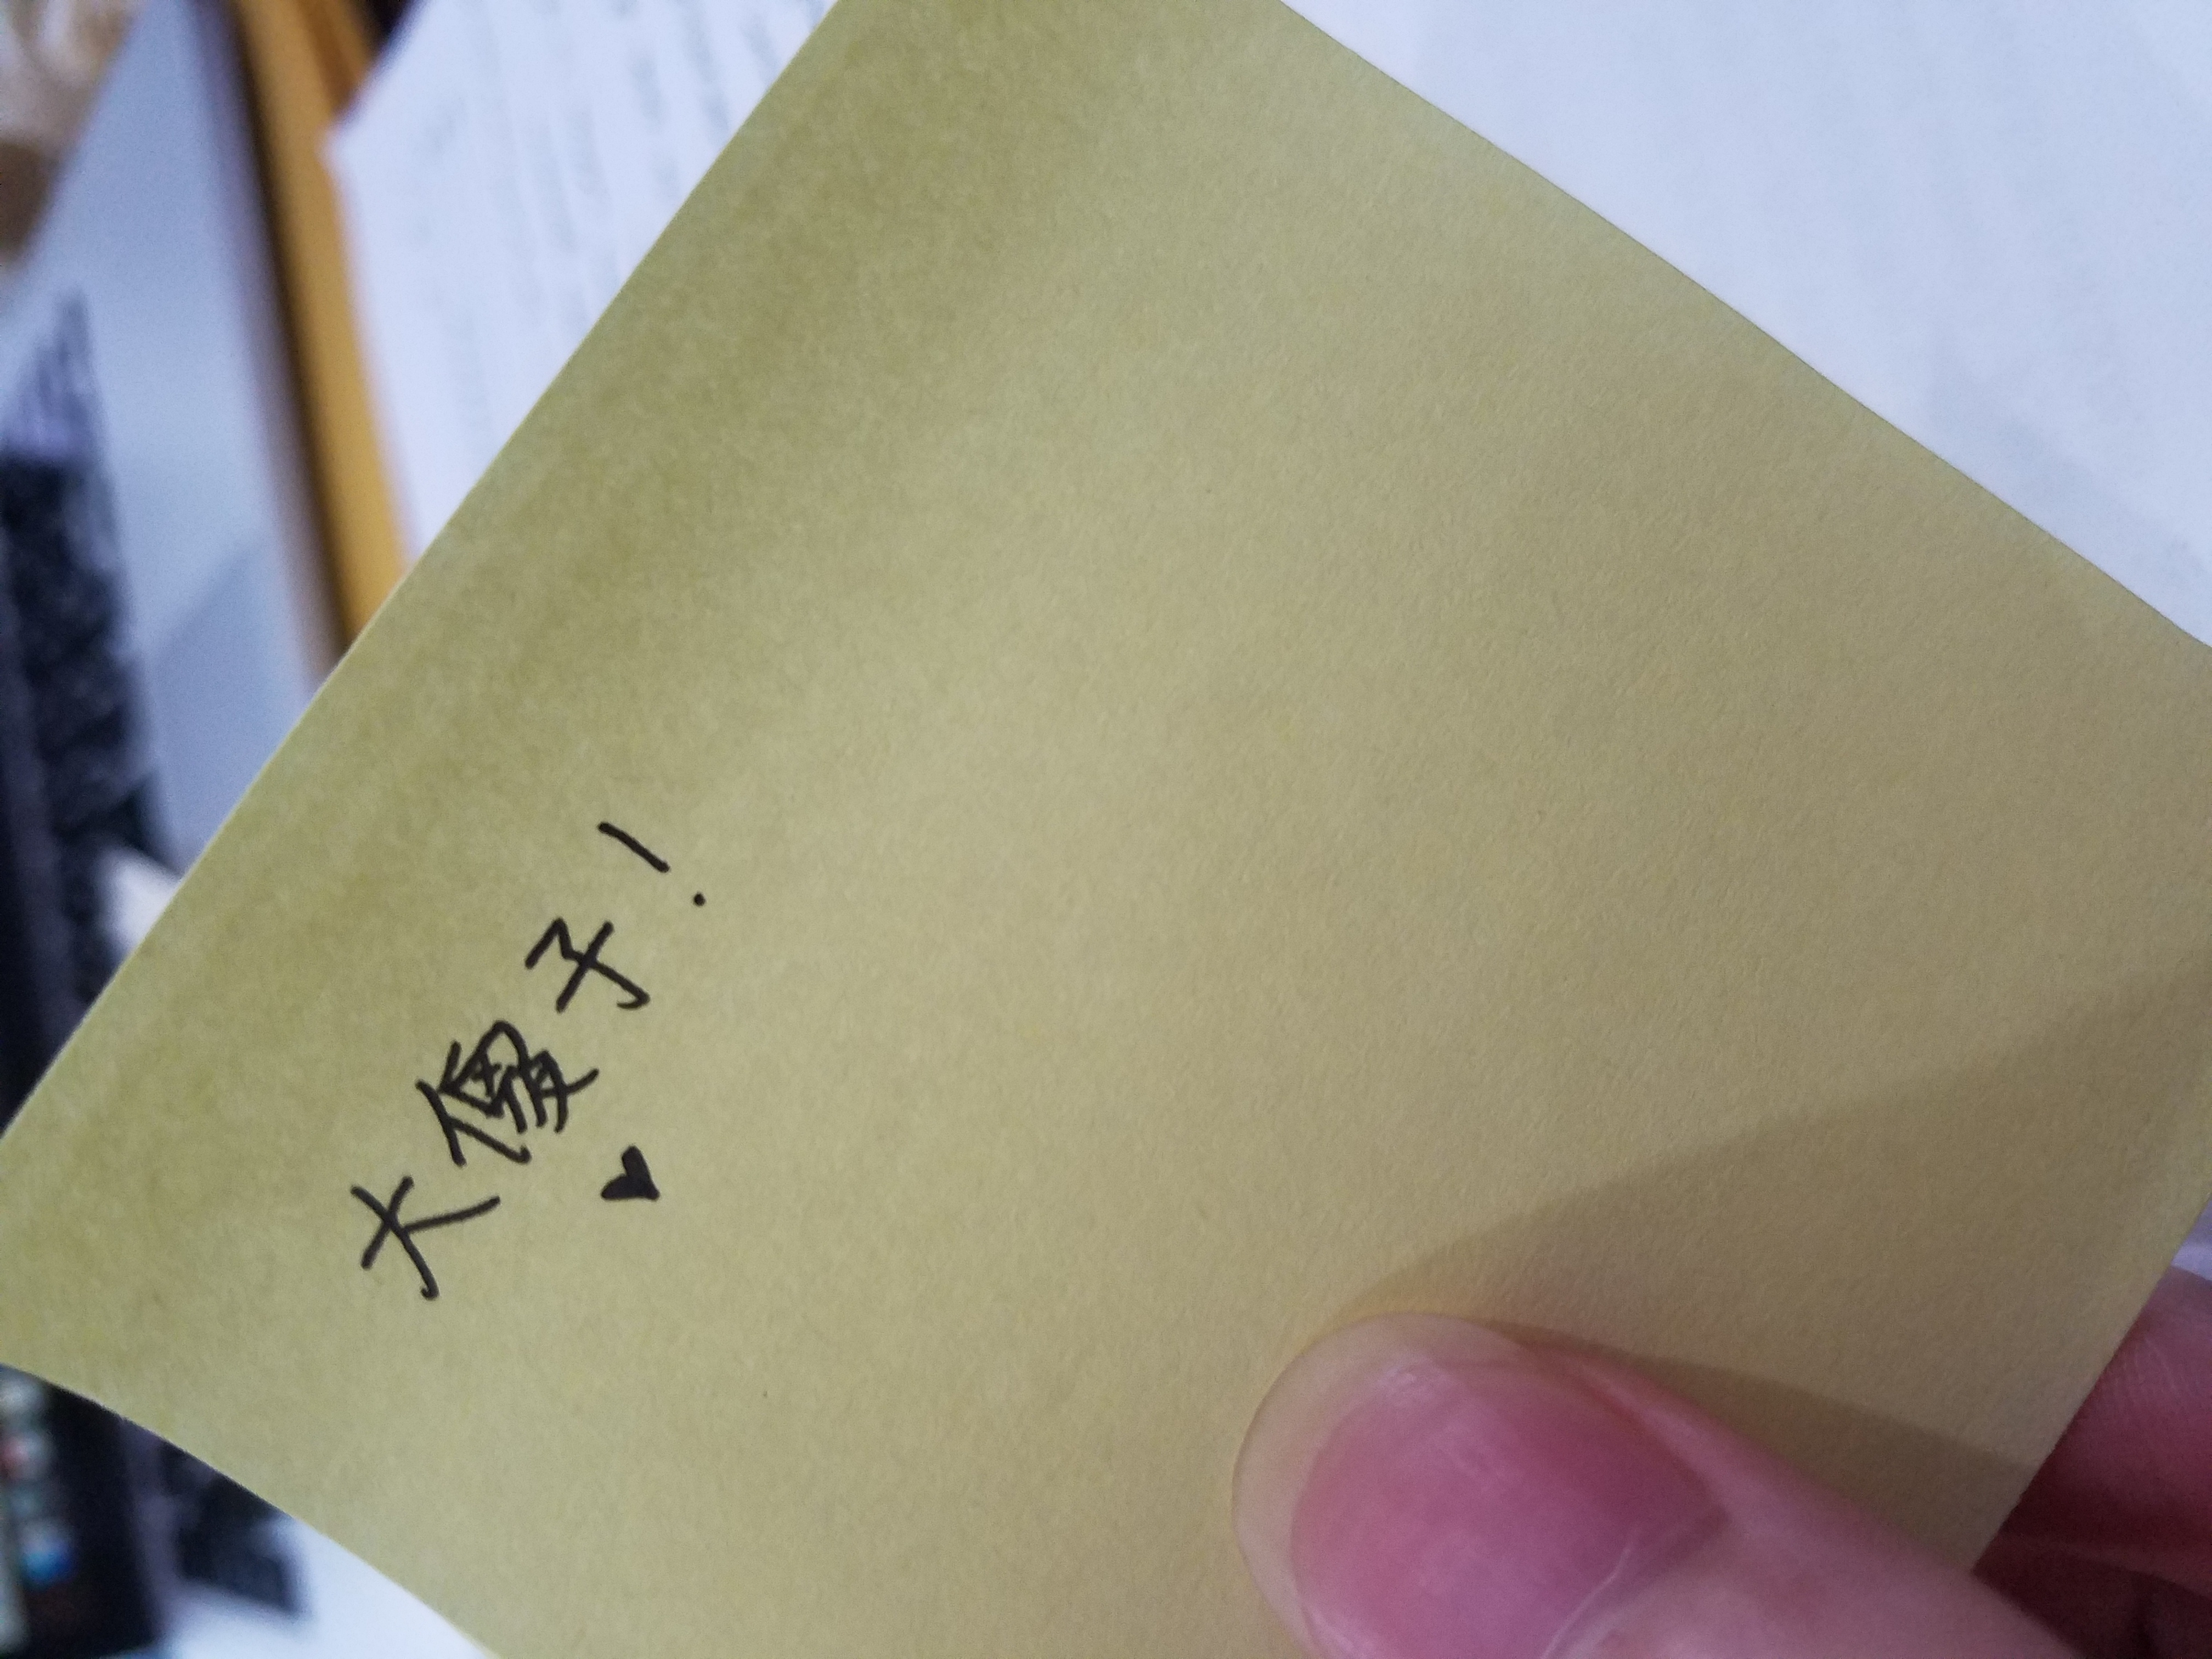 大傻子!
♥